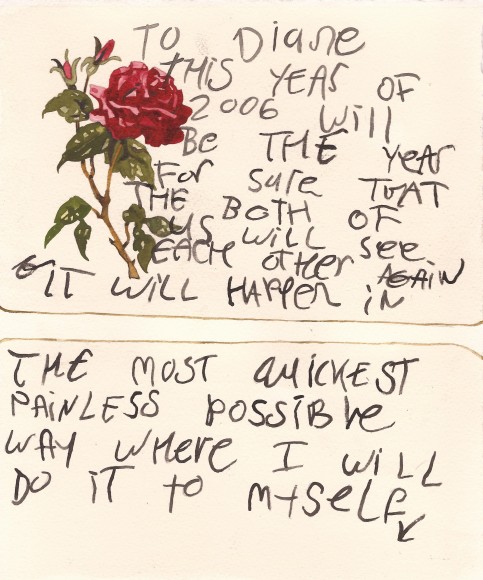 TO Diane
THIS YEAR OF
2006 will
Be THE year
For sure THAT
THE BOTH OF
US will see
EACH other AGAIN
IT WILL HAPPEN iN
THE MOST QUICKEST
PAINLESS POSSIBLE
WAY WHERE I WILL
DO iT to MYSELF